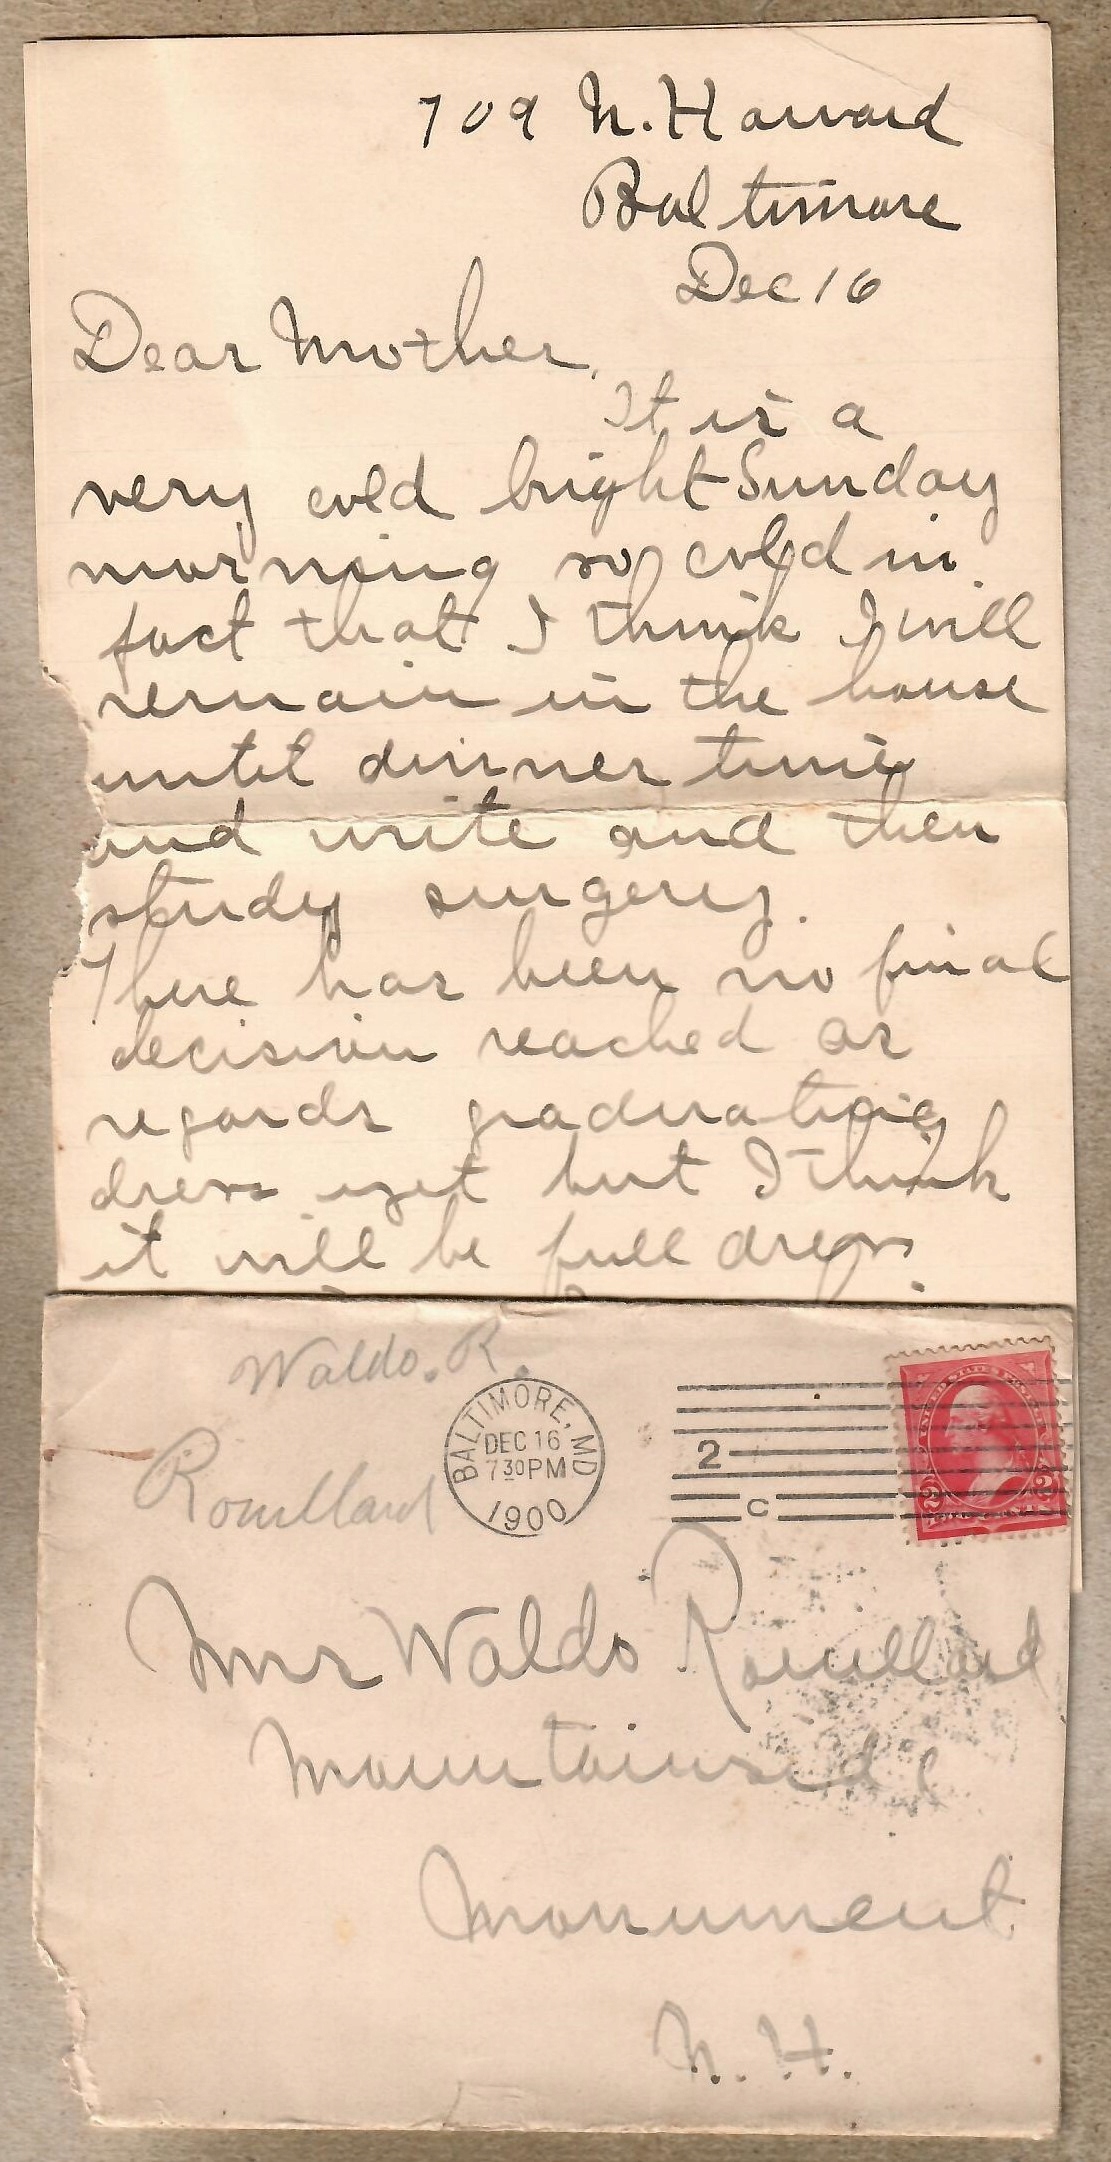 709 N. Howard
Baltimore
Dec 16
Dear Mother,
It is a
very cold bright Sunday
morning so cold in
fact that I think I will
remain in the house
until dinner time
and write and then
study surgery.
There has been no final
decision reached as
regards graduating
dress yet but I think
it will be full dress.
Waldo. R.
Rouillard
BALTIMORE, MD
DEC 16
7 30 PM
1900
2
C
Mrs Waldo Rouillard
Mountainside
Monument
N. H.